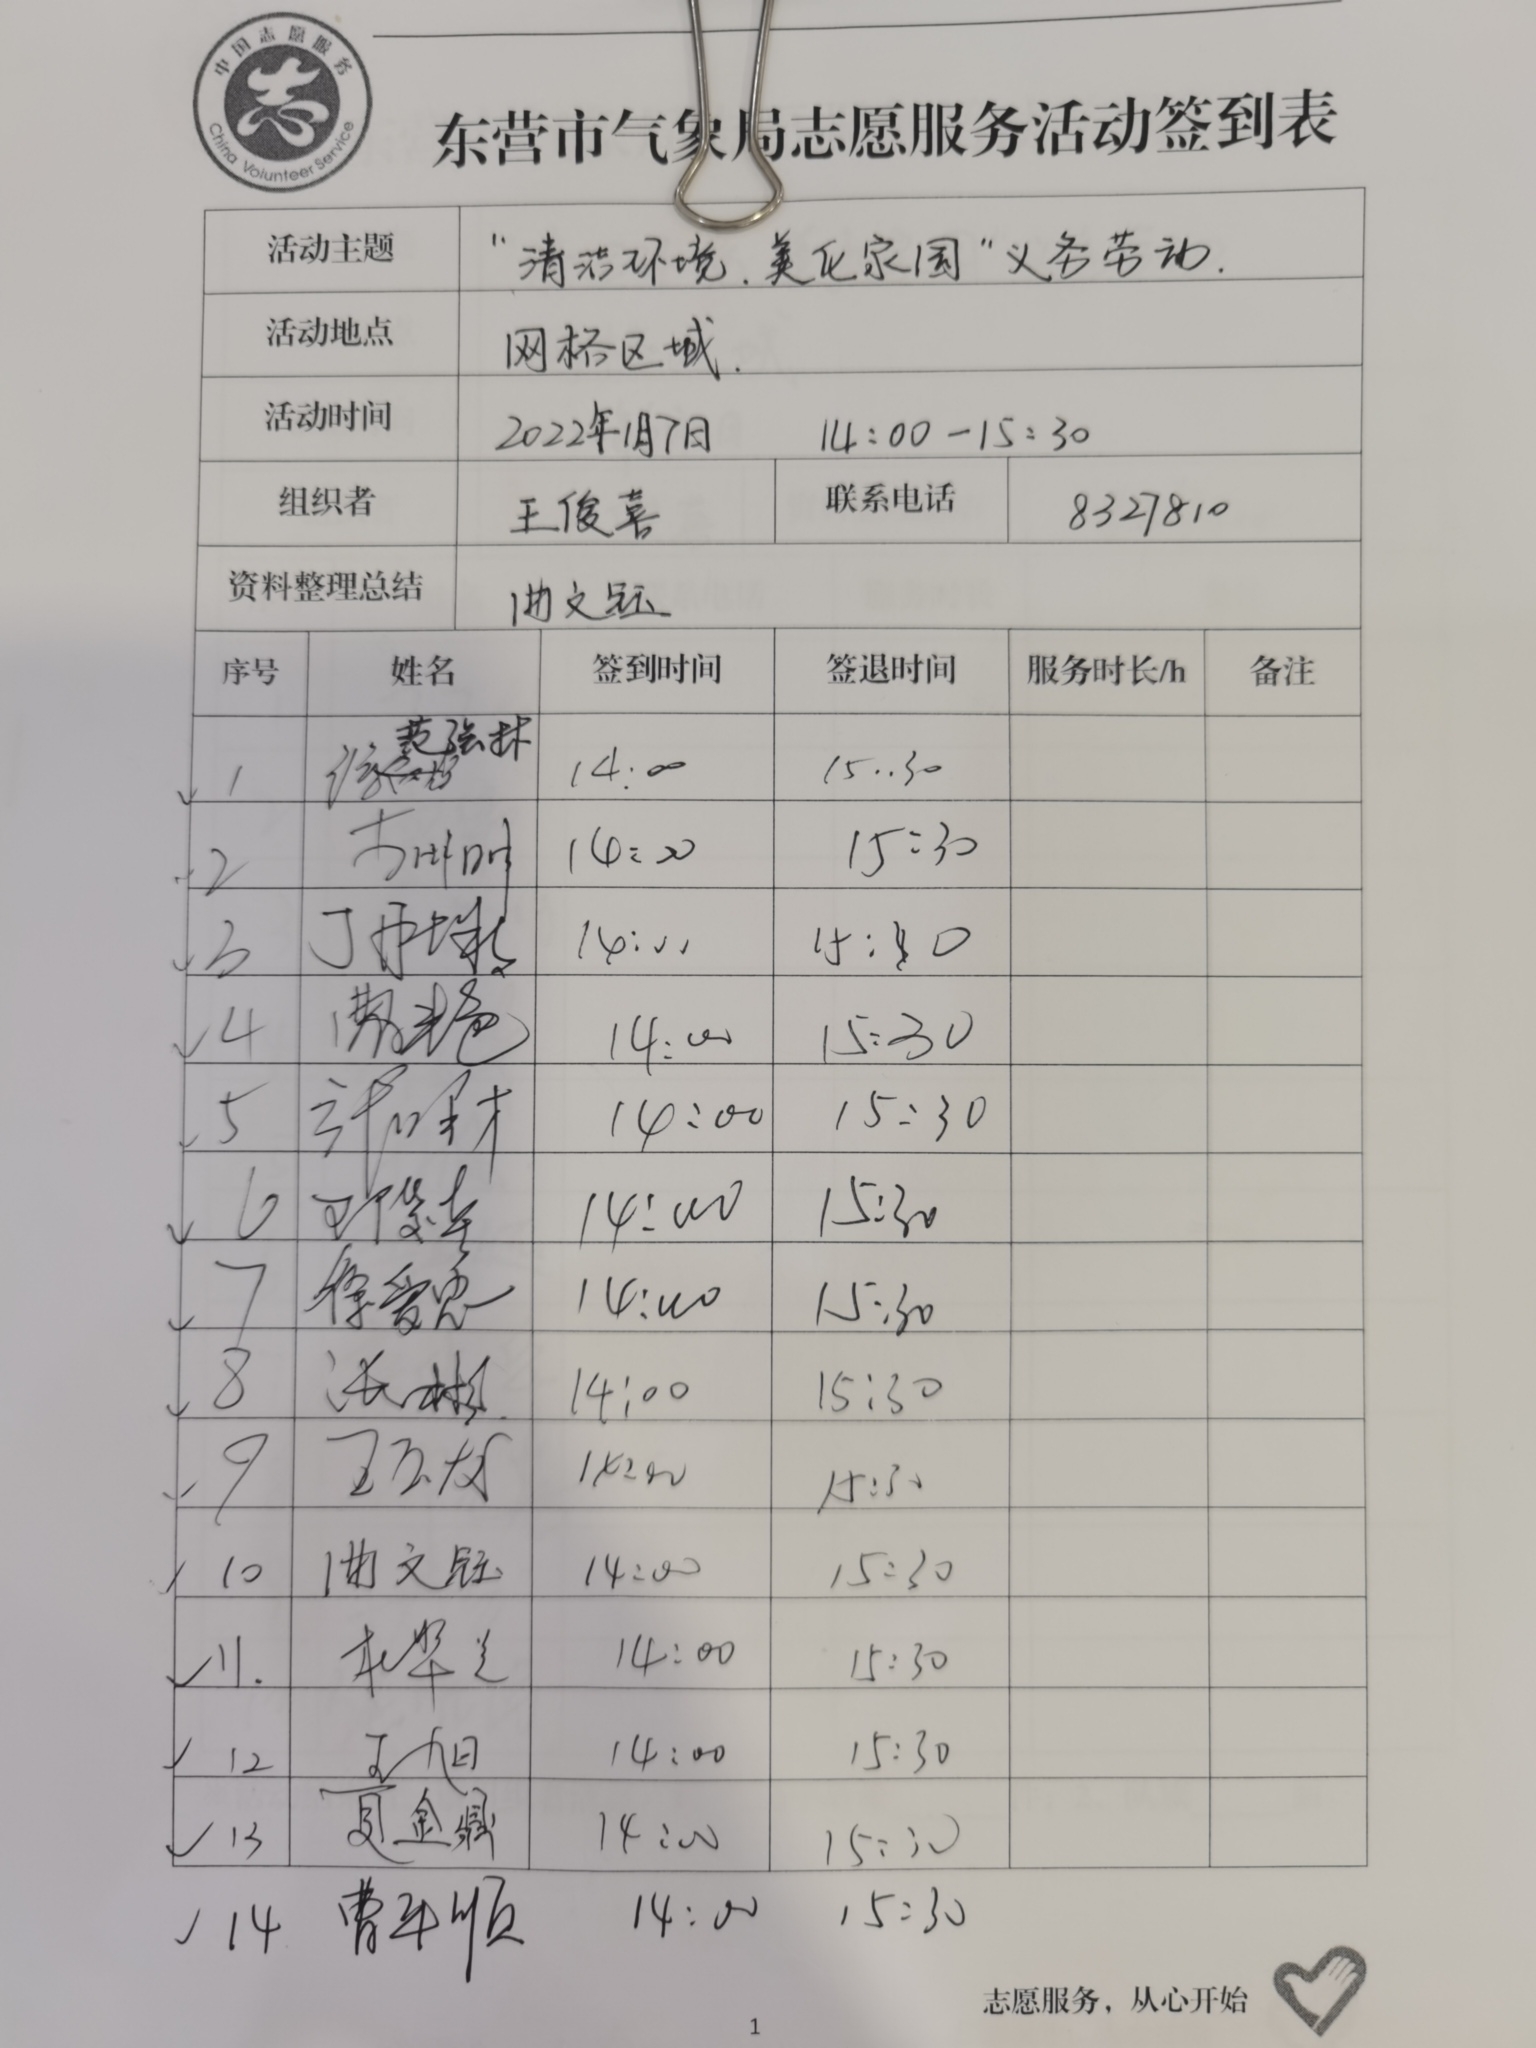 中国志愿服务
China Volunteer Service
东营市气象局志愿服务活动签到表
活动主题 “清洁环境、美化家园”义务劳动.
活动地点 网格区域.
活动时间 2022年1月7日 14:00-15:30
组织者 王俊喜 联系电话 8327810
资料整理总结 曲文钰
序号 姓名 签到时间 签退时间 服务时长/h 备注
1 14:00 15:30
2 14:00 15:30
3 14:00 15:30
4 14:00 15:30
5 14:00 15:30
6 14:00 15:30
7 14:00 15:30
8 张彬 14:00 15:30
9 14:00 15:30
10 曲文钰 14:00 15:30
11. 14:00 15:30
12 王旭 14:00 15:30
13 14:00 15:30
14 14:00 15:30
志愿服务，从心开始
1